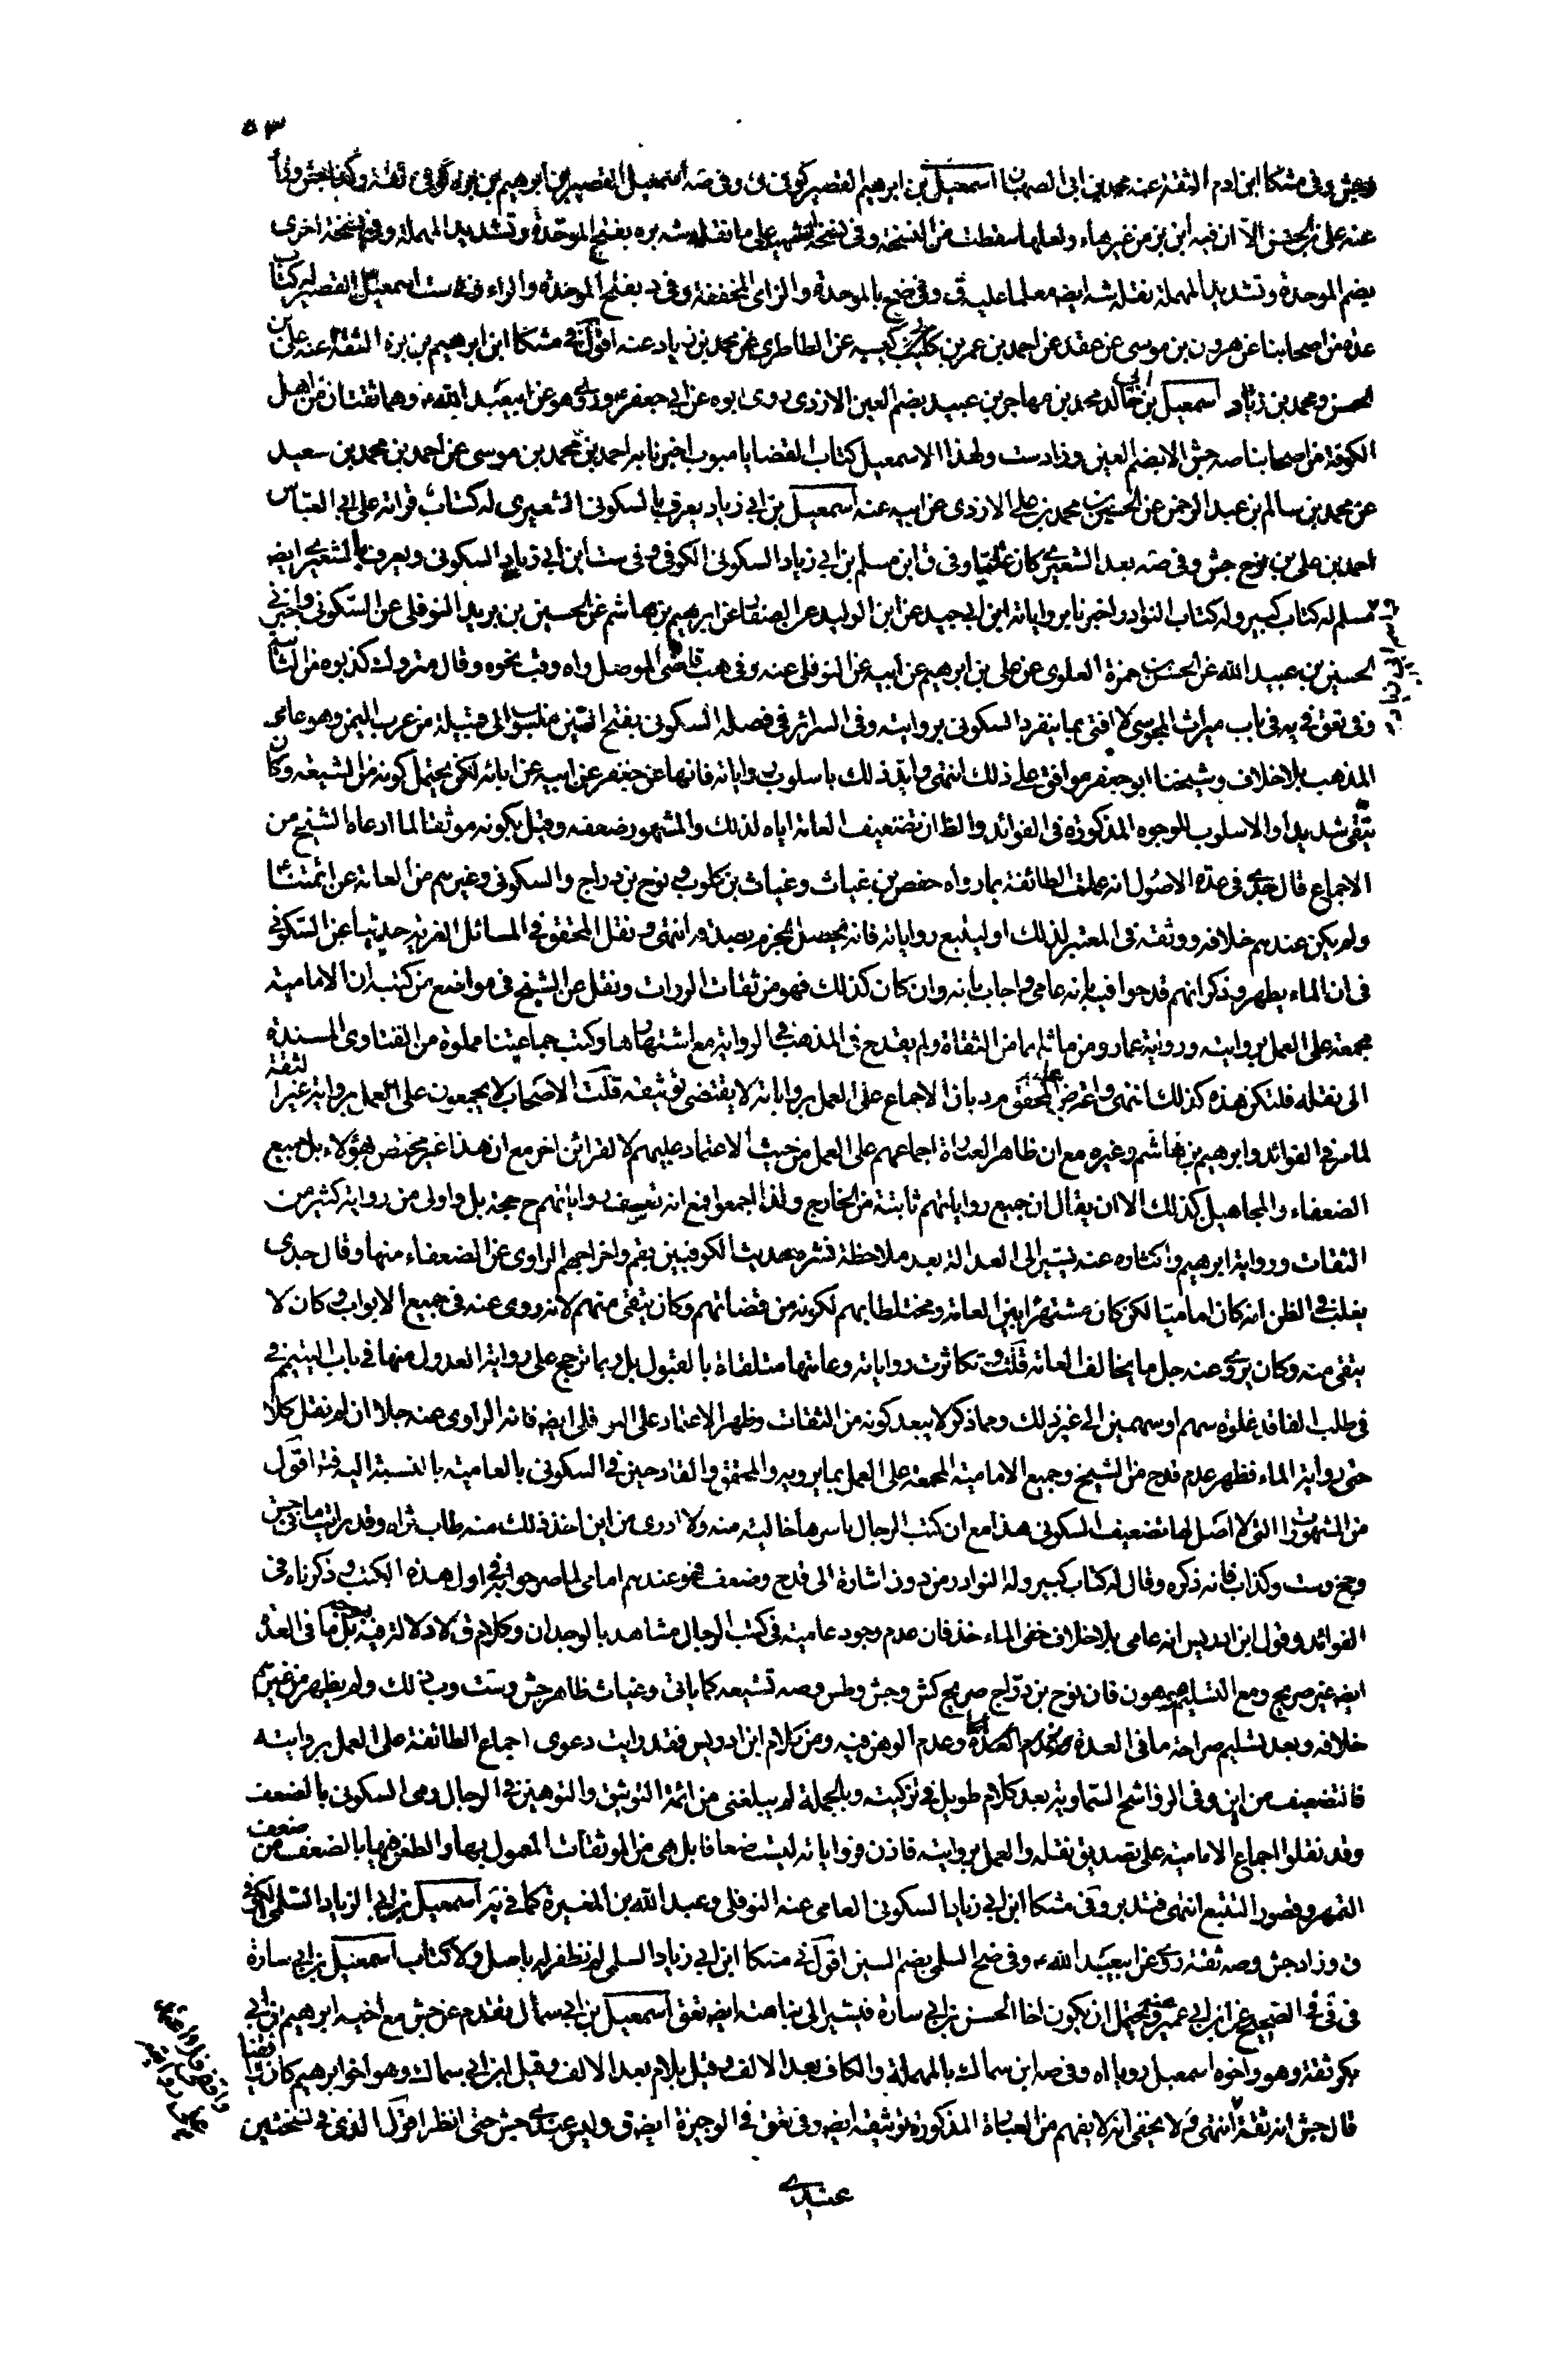 ٥٣
وجش وفي مشكا ابن ادم الثقة عنه محمد بن ابي الصهبان اسمعيل بن ابرهيم القصير كوفي ق وفي صه اسمعيل القصير بن ابرهيم بن بزه كوفي ثقة وكذا جش وزاد
عنه علي بن الحسن الا ان فيه ابن بز من غير هاء ولعلها سقطت من النسخة وفي نسخة الشهيد على ما نقله شه بره بفتح الموحدة وتشديد المهملة وفي نسخة اخرى
بضم الموحدة وتشديد المهملة نقله شه ايضه معلما عليه ق وفي ضح بالموحدة والزاي المخففة وفي د بفتح الموحدة والراء وفي ست اسمعيل القصير له كتاب
عدة من اصحابنا عن هرون بن موسى عن عقد عن احمد بن عمر بن كليب كيسبه عن الطاطري عن محمد بن زياد عنه اقول في مشكا ابن ابرهيم بن بزه الثقة عنه علي بن
الحسن ومحمد بن زياد اسمعيل بن ابي خالد محمد بن مهاجر بن عبيد بضم العين الازدي روى ابوه عن ابي جعفر ع وروى هو عن ابيعبد الله ع وهما ثقتان من اهل
الكوفة من اصحابنا صه جش الا بضم العين وزاد ست ولهذا الاسمعيل كتاب القضايا مبوب اخبرنا به احمد بن محمد بن موسى عن احمد بن محمد بن سعيد
عن محمد بن سالم بن عبد الرحمن عن الحسين بن محمد بن علي الازدي عن ابيه عنه اسمعيل بن ابي زياد يعرف بالسكوني الشعيري له كتاب قراته على ابي العباس
احمد بن علي بن نوح جش وفي صه بعد الشعيري كان عاميا وفي ق ابن مسلم بن ابي زياد السكوني الكوفي وفي ست ابن ابي زياد السكوني ويعرف بالشعيري ايضه
مسلم له كتاب كبير وله كتاب النوادر اخبرنا بروايات ابن ابي جيد عن ابن الوليد عن الصفار عن ابرهيم بن هاشم عن الحسين بن يزيد النوفلي عن السكوني واخبرني
الحسين بن عبيد الله عن الحسن بن حمزة العلوي عن علي بن ابرهيم عن ابيه عن النوفلي عنه وفي هب قاضي الموصل واه وقب نحوه وقال متروك كذبوه من الثامنة
وفي تعق في يه في باب ميراث المجوسي لا افتي بما ينفرد السكوني بروايته وفي السرائر في فصله السكوني بفتح السين منسوب الى قبيلة من عرب اليمن وهو عامي
المذهب بلا خلاف وشيخنا ابو جعفر موافق على ذلك انتهى وايد ذلك باسلوب رواياته فانها عن جعفر عن ابيه عن ابائه لكن يحتمل كونه من الشيعة وكان
يتقي شديدا والاسلوب للوجوه المذكورة في الفوائد والظ ان تضعيف العامة اياه لذلك والمشهور ضعفه وقيل بكونه موثقا لما ادعاه الشيخ من
الاجماع قال جدي في عدة الاصول انه عملت الطائفة بما رواه حفص بن غياث وغياث بن كلوب ونوح بن دراج والسكوني وغيرهم من العامة عن ائمتنا ع
ولم يكن عندهم خلافه ووثقه في المعتبر لذلك او لتتبع رواياته فانه يحصل الجزم بصدقه انتهى ونقل المحقق في المسائل الغرية حديثا عن السكوني
في ان الماء يطهر وذكر انهم قدحوا فيه بانه عامي واجاب بانه وان كان كذلك فهو من ثقات الروات ونقل عن الشيخ في مواضع من كتبه ان الامامية
مجمعة على العمل بروايته ورواية عمار ومن ماثلهما من الثقاة ولم يقدح في المذهب في الرواية مع اشتهارها وكتب جماعتنا مملوة من الفتاوى المسندة
الى نقله فلتكن هذه كذلك انتهى واعترض على المحقق مرد بان الاجماع على العمل برواياته لا يقتضي توثيقه قلت الاصحاب لا يجمعون على العمل برواية غير الثقة
لما مر في الفوائد وابرهيم بن هاشم وغيره مع ان ظاهر العبارة اجماعهم على العمل من حيث الاعتماد عليهم لا لقرائن اخر مع ان هذا غير مختص بهؤلاء بل جميع
الضعفاء والمجاهيل كذلك الا ان يقال ان جميع رواياتهم ثابتة من الخارج ولذا اجمعوا فمع انه تعسف رواياتهم ح حجة بل واولى من رواية كثير من
الثقات ورواية ابرهيم واكثاره عنه تشير الى العدالة بعد ملاحظة نشره حديث الكوفيين بقم واخراجهم الراوي عن الضعفاء منها وقال جدي
يغلب في الظن انه كان اماميا لكن كان مشتهرا بين العامة ومختلطا بهم لكونه من قضاتهم وكان يتقي منهم لانه روى عنه في جميع الابواب وكان لا
يتقي منه وكان يروي عنه جل ما يخالف العامة قلت وتكاثرت رواياته وعامتها متلقاة بالقبول بل ربما ترجح على رواية العدول منها في باب التيمم في
في طلب الفاقد غلوة سهم او سهمين الى غير ذلك ومما ذكر لا يبعد كونه من الثقات وظهر الاعتماد على النوفلي ايضه فانه الراوي عنه جلا ان لم نقل كلا
حتى رواية الماء فظهر عدم قدح من الشيخ وجميع الامامية المجمعة على العمل بما يرويه والمحقق والقادحين في السكوني بالعامية بالنسبة اليه فتد اقول
من المشهورات التي لا اصل لها تضعيف السكوني هذا مع ان كتب الرجال باسرها خالية منه ولا ادري من اين اخذ ذلك منه طاب ثراه وقد رايت ما في جش
وجخ وست وكذا ب فانه ذكره وقال له كتاب كبير وله النوادر من دون اشارة الى قدح وضعف فهو عندهم امامي لما صرحوا به في اول هذه الكتب وذكرناه في
الفوائد وقول ابن ادريس انه عامي بلا خلاف خفي الماء خذ فان عدم وجود عاميته في كتب الرجال مشاهد بالوجدان وكلام ق لا دلالة فيه بل ما في العدة
ايضه غير صريح ومع التسليم موهون فان نوح بن دراج صريح كش وجش وطس وصه تشيعه كما ياتي وغياث ظاهر جش وست وب ذلك ولم يظهر من غيرهم
خلافه وبعد تسليم صراحة ما في العدة وعدم الوهن فيه ومن كلام ابن ادريس فقد رايت دعوى اجماع الطائفة على العمل بروايته
فالتضعيف من اين وفي الرواشح السماوية بعد كلام طويل في تزكيته وبالجملة لم يبلغني من ائمة التوثيق والتوهين في الرجال رمى السكوني بالضعف
وقد نقلوا اجماع الامامية على تصديق نقله والعمل بروايته فاذن مروياته ليست ضعافا بل هي من الموثقات المعمول بها والطعن فيها بالضعف من ضعف
التمهر وقصور التتبع انتهى فتدبر وفي مشكا ابن ابي زياد السكوني العامي عنه النوفلي وعبد الله بن المغيرة كما في يه اسمعيل بن ابي الزياد السلمي الكوفي
ق وزاد جش وصه ثقة روى عن ابيعبد الله ع وفي ضح السلمي بضم السين اقول في مشكا ابن ابي زياد السلمي لم نظفر له باصل ولا كتاب اسمعيل بن ابي سارة
في في في الصحيح عن ابن ابي عمير عنه ويحتمل ان يكون اخا الحسن بن ابي سارة فيشير الى نباهته ايضه تعق اسمعيل بن ابي سمال يتقدم عن جش مع اخيه ابرهيم بن ابي
بكر ثقة وهو واخوه اسمعيل رويا اه وفي صه ابن سماك بالمهملة والكاف بعد الالف وقيل بلام بعد الالف وقيل ابن ابي سماك وهو اخو ابرهيم كان واقفيا
قال جش انه ثقة انتهى ولا يخفى انه لا يفهم من العبارة المذكورة توثيقه ايضه وفي تعق في الوجيزة ايضه ق وليس عندي جش حتى انظر اقول الذي في نسختين
عندي